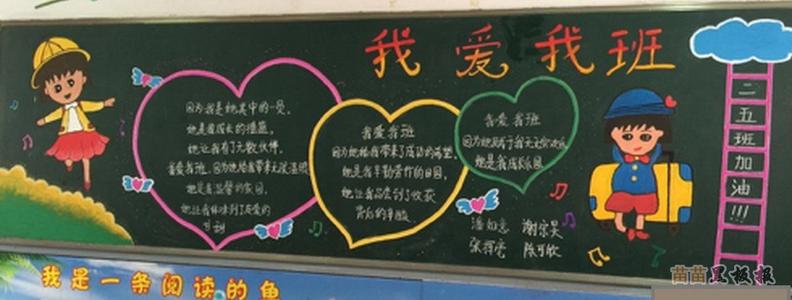 我爱我班
因为我是她其中的一员,
她是我成长的摇篮,
她让我有了无数伙伴,
我爱我班,因为她给我带来无限温暖
她是着温馨的家园,
她让我体味到了友爱的
我爱我班
因为她给我带来了成功的希望,
她是我辛勤劳作的田园,
她让我品尝到了收获
背后的辛酸
我爱我班
她是我成长的乐园
二五班加油!!!
苗苗黑板报
我是一条阅读的鱼